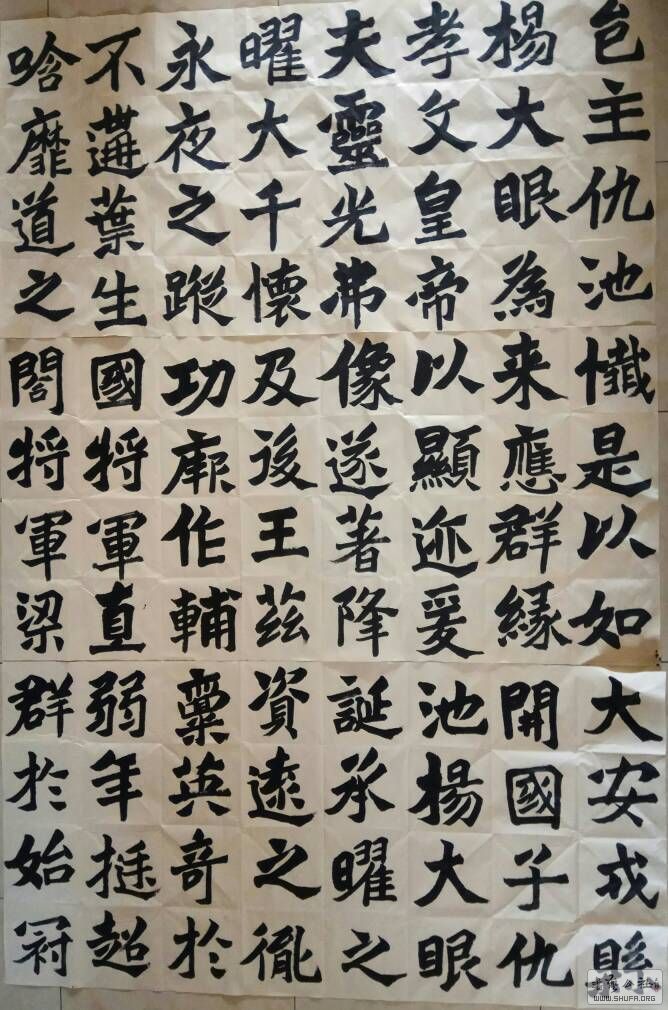 邑主仇池
楊大眼為
孝文皇帝
夫靈光弗
曜大千懷
永夜之蹤
不遘葉生
唅靡道之
懺是以如
来應群緣
以顯迹爰
像遂著降
及後王茲
功厥作輔
國將軍直
閤將軍梁
大安戎縣
開國子仇
池楊大眼
誕承曜之
資遠之胤
稟英奇於
弱年挺超
群於始冠
书法公社
WWW.SHUFA.ORG